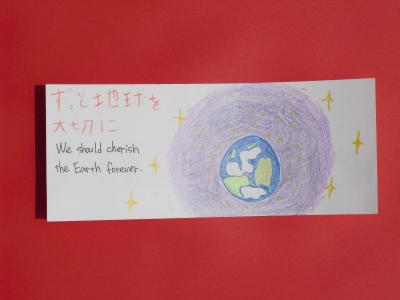 ずっと地球を
大切に
We should cherish
the Earth forever.